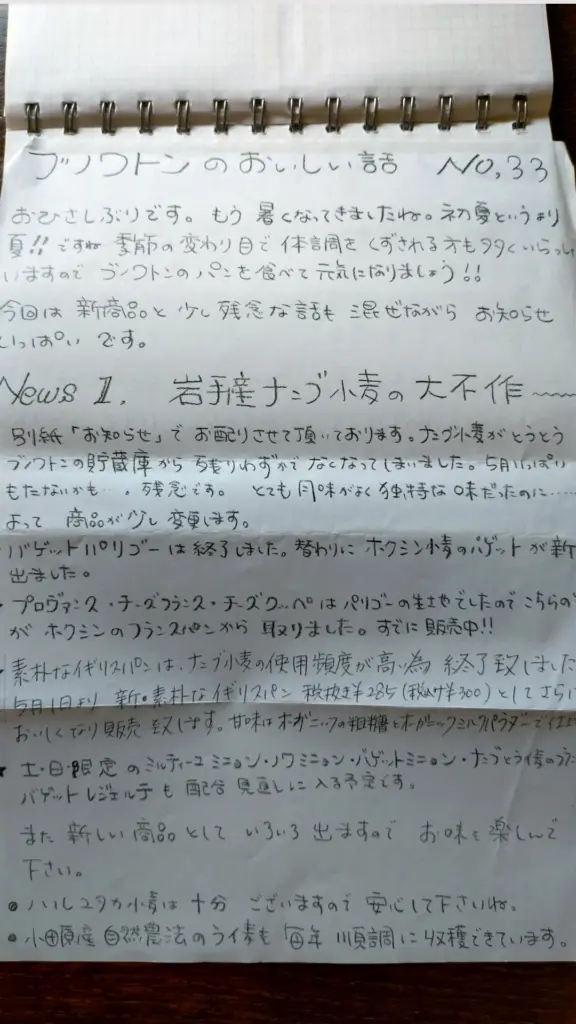 ブノワトンのおいしい話 No,33
おひさしぶりです。もう暑くなってきましたね。初夏というより
夏!!ですね 季節の変わり目で体調をくずされる方も多くいらっし
いますのでブノワトンのパンを食べて元気になりましょう!!
今回は新商品と少し残念な話も混ぜながらお知らせ
いっぱいです。
News 1. 岩手産ナンブ小麦の大不作〜〜
別紙「お知らせ」でお配りさせて頂いております。ナンブ小麦がとうとう
ブノワトンの貯蔵庫から残りわずかでなくなってしまいました。5月いっぱい
もたないかも…。残念です。とても風味がよく独特な味だったのに……
よって商品が少し変更します。
・バゲットパリゴーは終了しました。替わりにホクシン小麦のバゲットが新
出ました。
・プロヴァンス・チーズフランス・チーズクッペはパリゴーの生地でしたのでこちらの
がホクシンのフランスパンから取りました。すでに販売中!!
・素朴なイギリスパンは、ナンブ小麦の使用頻度が高い為 終了致しました
5月1日より 新・素朴なイギリスパン 税抜き¥285(税込¥300)としてさらに
おいしくなり販売致します。甘味はオーガニックの粗糖とオーガニックミルクパウダーで
★ 土・日・限定のミルティーユミニョン・ノワミニョン・バゲットミニョン・
バゲットレジェルテも配合見直しに入る予定です。
また新しい商品としていろいろ出ますので お味を楽しんで
下さい。
◎ ハルユタカ小麦は十分ございますので安心して下さいね。
◎ 小田原産自然農法のライ麦も毎年順調に収穫できています。